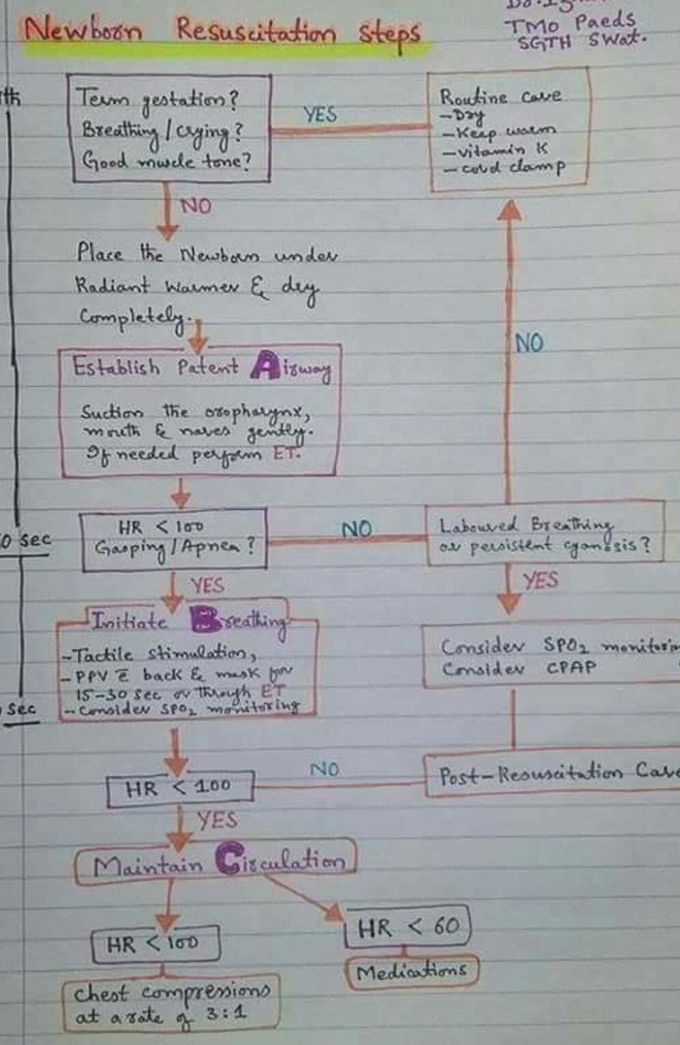 Newborn Resuscitation steps
TMO Paeds
SGTH SWat.
Term gestation?
Breathing/crying?
Good muscle tone?
YES
Routine care
-Dry
-Keep warm
-vitamin K
-cord clamp
NO
Place the Newborn under
Radiant Warmer & dry
Completely.
NO
Establish Patent Airway
Suction the oropharynx,
mouth & nares gently.
If needed perform ET.
HR < 100
Gasping/Apnea?
NO
Laboured Breathing
or persistent cyanosis?
0 sec
YES
YES
Initiate Breathing
-Tactile stimulation,
-PPV c̄ back & mask for
15-30 sec or through ET
-Consider SPO₂ monitoring
Consider SPO₂ monitorin
Consider CPAP
sec
HR < 100
NO
Post-Resuscitation Care
YES
Maintain Circulation
HR < 100
HR < 60
Medications
Chest compressions
at a rate of 3:1